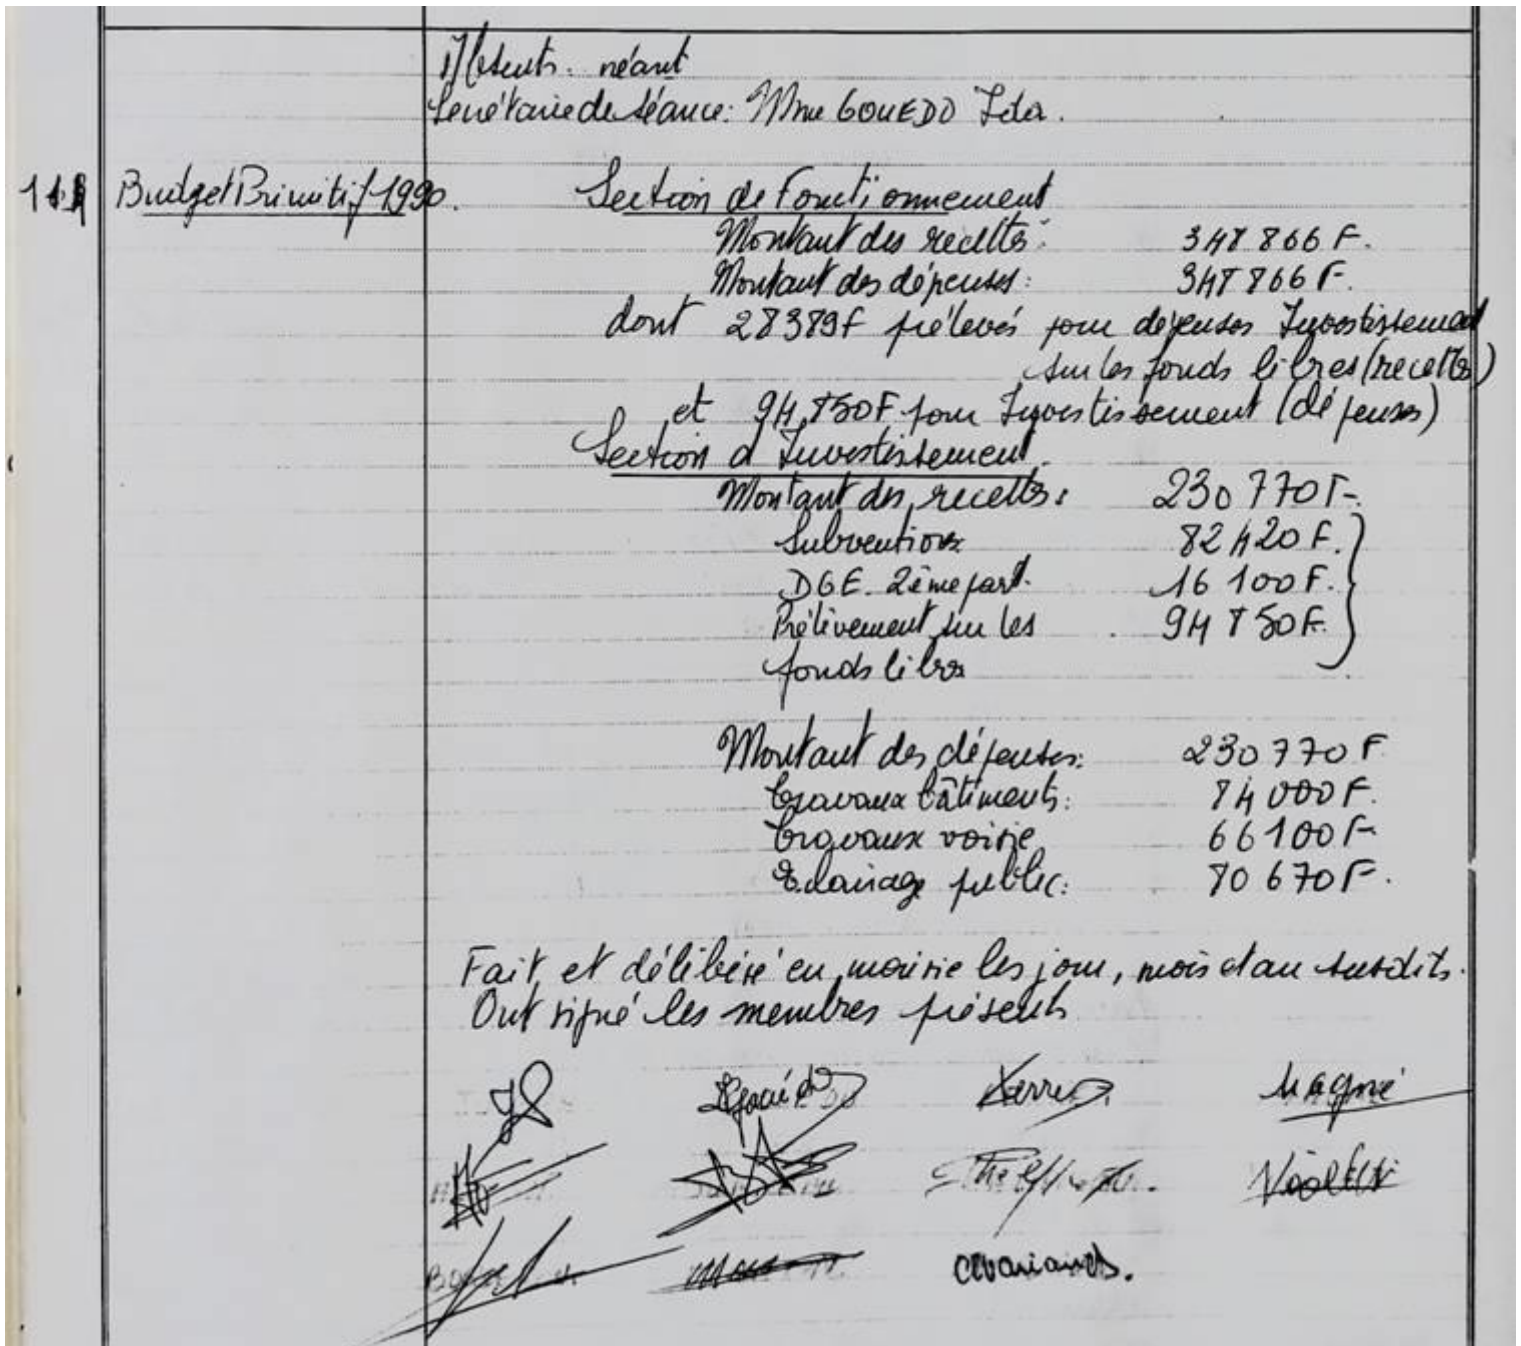 Absents : néant
Secrétaire de séance : Mme GOUEDO Ida.
Budget Primitif 1990.
Section de Fonctionnement
Montant des recettes : 348 866 F.
Montant des dépenses : 348 866 F.
dont 28389F prélevés pour dépenses Investissement
sur les fonds libres (recettes)
et 94 850F pour Investissement (dépenses)
Section d'Investissement
Montant des recettes : 230 770 F.
Subventions 82 420 F.
DGE. 2ème part. 16 100 F.
Prélèvement sur les 94 850 F.
fonds libres
Montant des dépenses : 230 770 F
Travaux bâtiments : 84 000 F.
Travaux voirie 66 100 F
Eclairage public : 80 670 F.
Fait et délibéré en mairie les jour, mois et an susdits.
Ont signé les membres présents
Magné